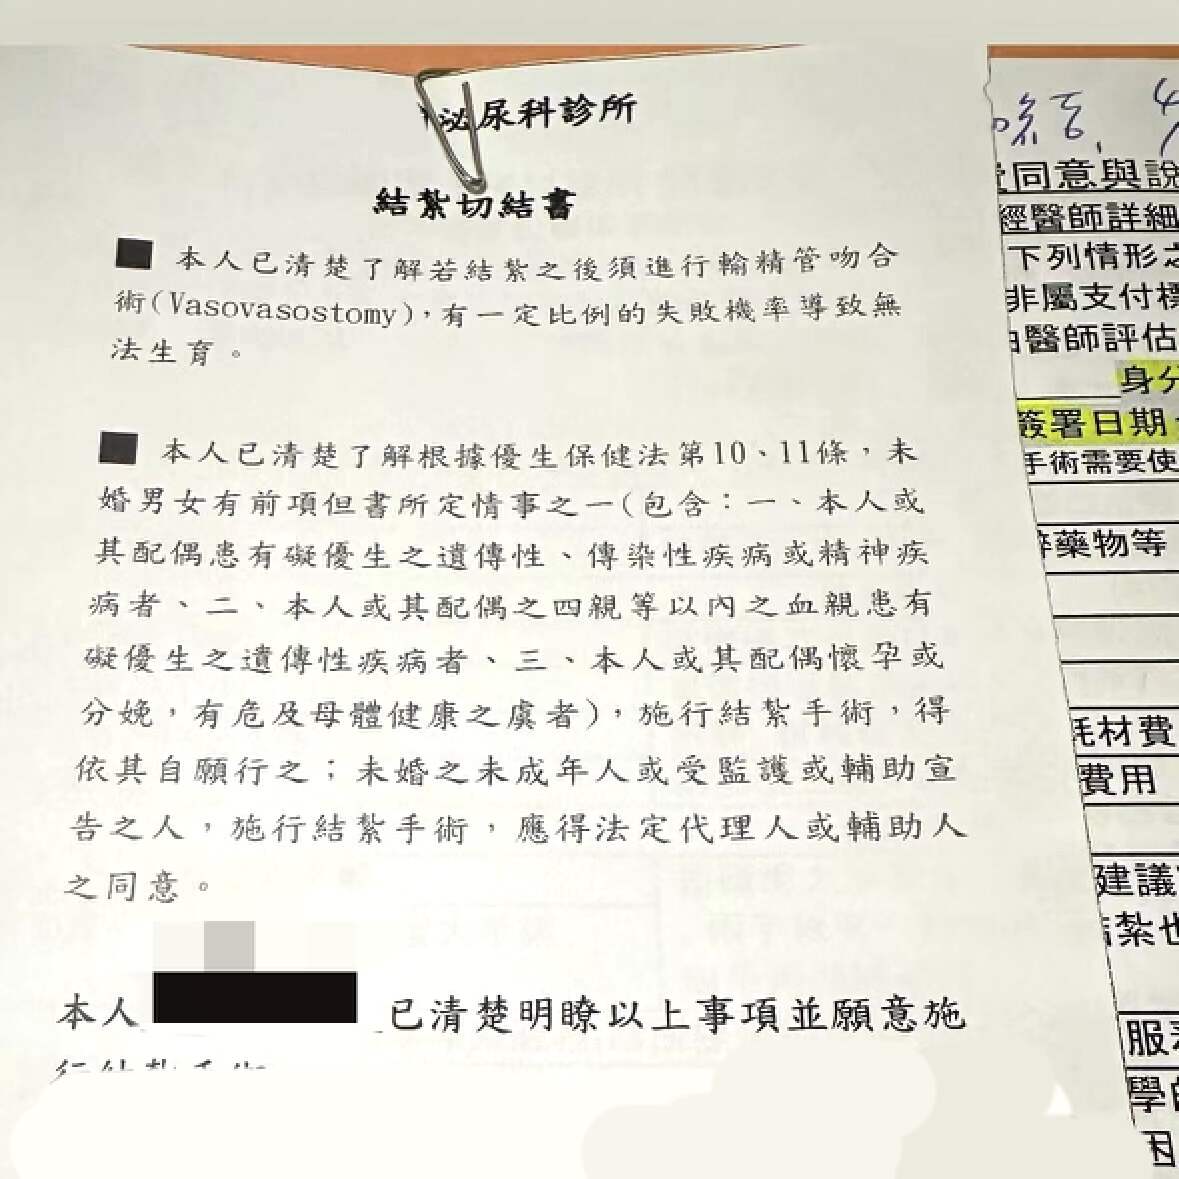 泌尿科診所
結紮切結書
■ 本人已清楚了解若結紮之後須進行輸精管吻合
術(Vasovasostomy),有一定比例的失敗機率導致無
法生育。
■ 本人已清楚了解根據優生保健法第10、11條,未
婚男女有前項但書所定情事之一(包含:一、本人或
其配偶患有礙優生之遺傳性、傳染性疾病或精神疾
病者、二、本人或其配偶之四親等以內之血親患有
礙優生之遺傳性疾病者、三、本人或其配偶懷孕或
分娩,有危及母體健康之虞者),施行結紮手術,得
依其自願行之;未婚之未成年人或受監護或輔助宣
告之人,施行結紮手術,應得法定代理人或輔助人
之同意。
本人 已清楚明瞭以上事項並願意施
行結紮手術
同意與說
經醫師詳細
下列情形之
非屬支付標
醫師評估
身分
簽署日期
手術需要使
藥物等
耗材費
費用
建議
紮也
服務
學的
因